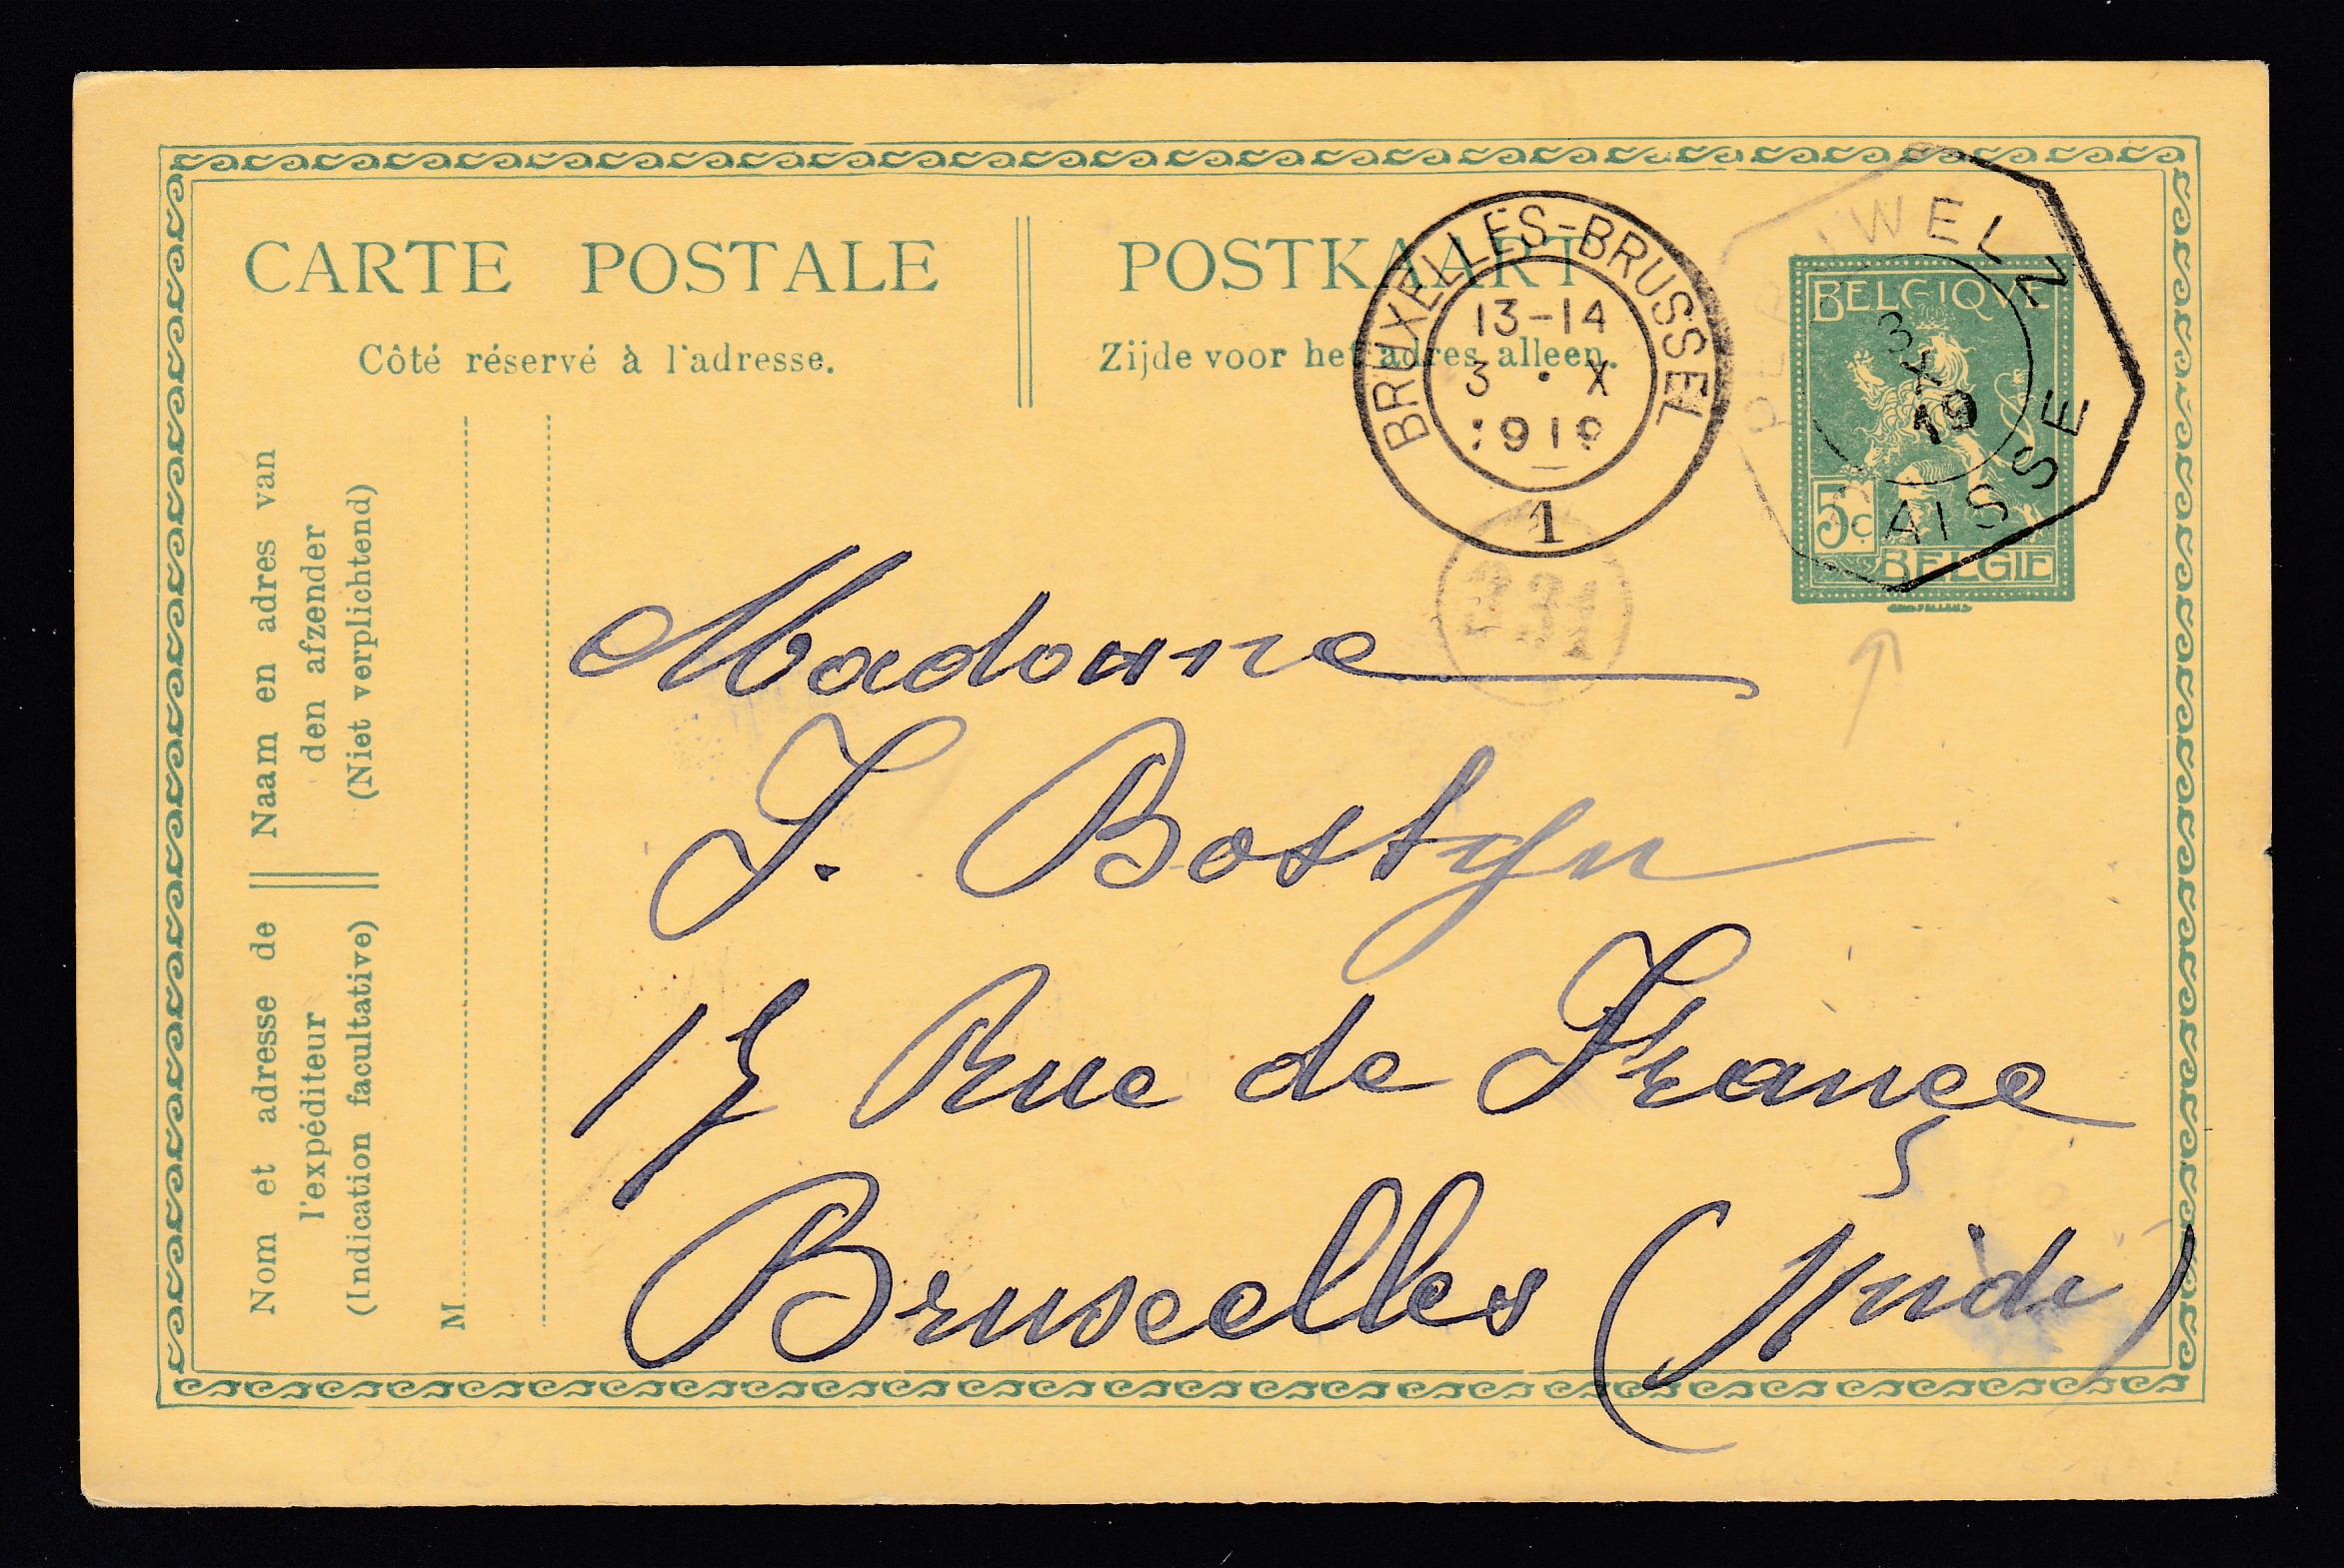 CARTE POSTALE
Côté réservé à l'adresse.
POSTKAART
Zijde voor het adres alleen.
BRUXELLES-BRUSSEL
13-14
3 • X
1919
1
PERUWELZ
3
X
19
CAISSE
BELGIQVE
5c
BELGIE
331
Naam en adres van
den afzender
(Niet verplichtend)
Nom et adresse de
l'expéditeur
(Indication facultative)
M
Madame
J. Bostyn
17 Rue de France
Bruxelles (Midi)